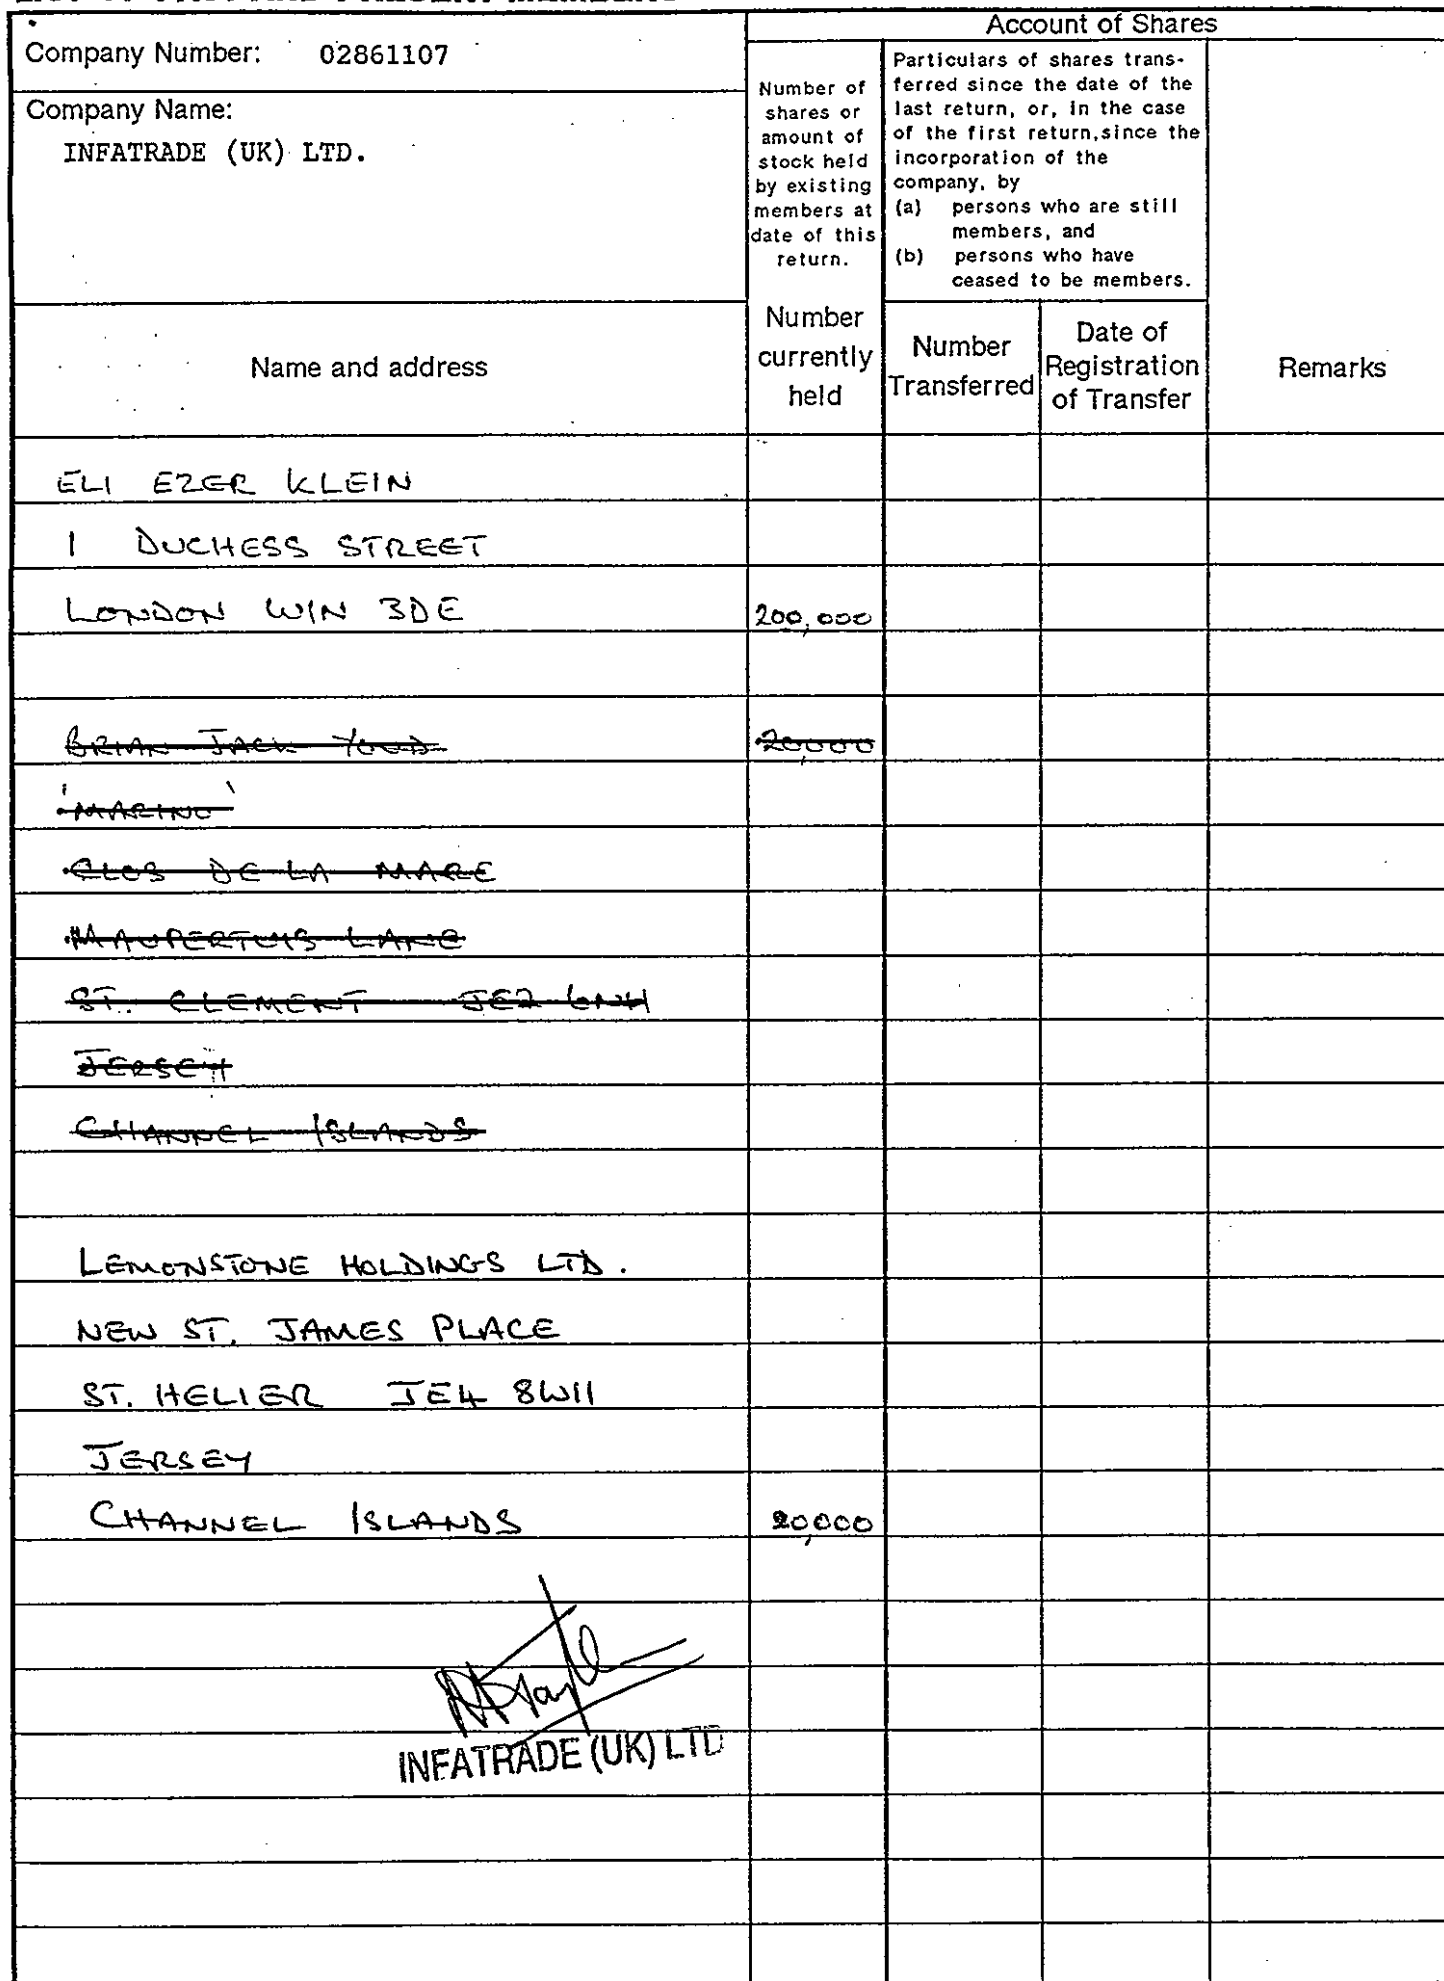 Account of Shares
Company Number: 02861107
Company Name:
INFATRADE (UK) LTD.
Number of
shares or
amount of
stock held
by existing
members at
date of this
return.
Particulars of shares trans-
ferred since the date of the
last return, or, in the case
of the first return, since the
incorporation of the
company, by
(a) persons who are still
members, and
(b) persons who have
ceased to be members.
Name and address
Number
currently
held
Number
Transferred
Date of
Registration
of Transfer
Remarks
ELI EZER KLEIN
1 DUCHESS STREET
LONDON W1N 3DE 200,000
BRIAN JACK YOUD 20,000
'MARINO'
CLOS DE LA MARE
MAUPERTUIS LANE
ST. CLEMENT JE2 6NH
JERSEY
CHANNEL ISLANDS
LEMONSTONE HOLDINGS LTD.
NEW ST. JAMES PLACE
ST. HELIER JE4 8WH
JERSEY
CHANNEL ISLANDS 20,000
INFATRADE (UK) LTD